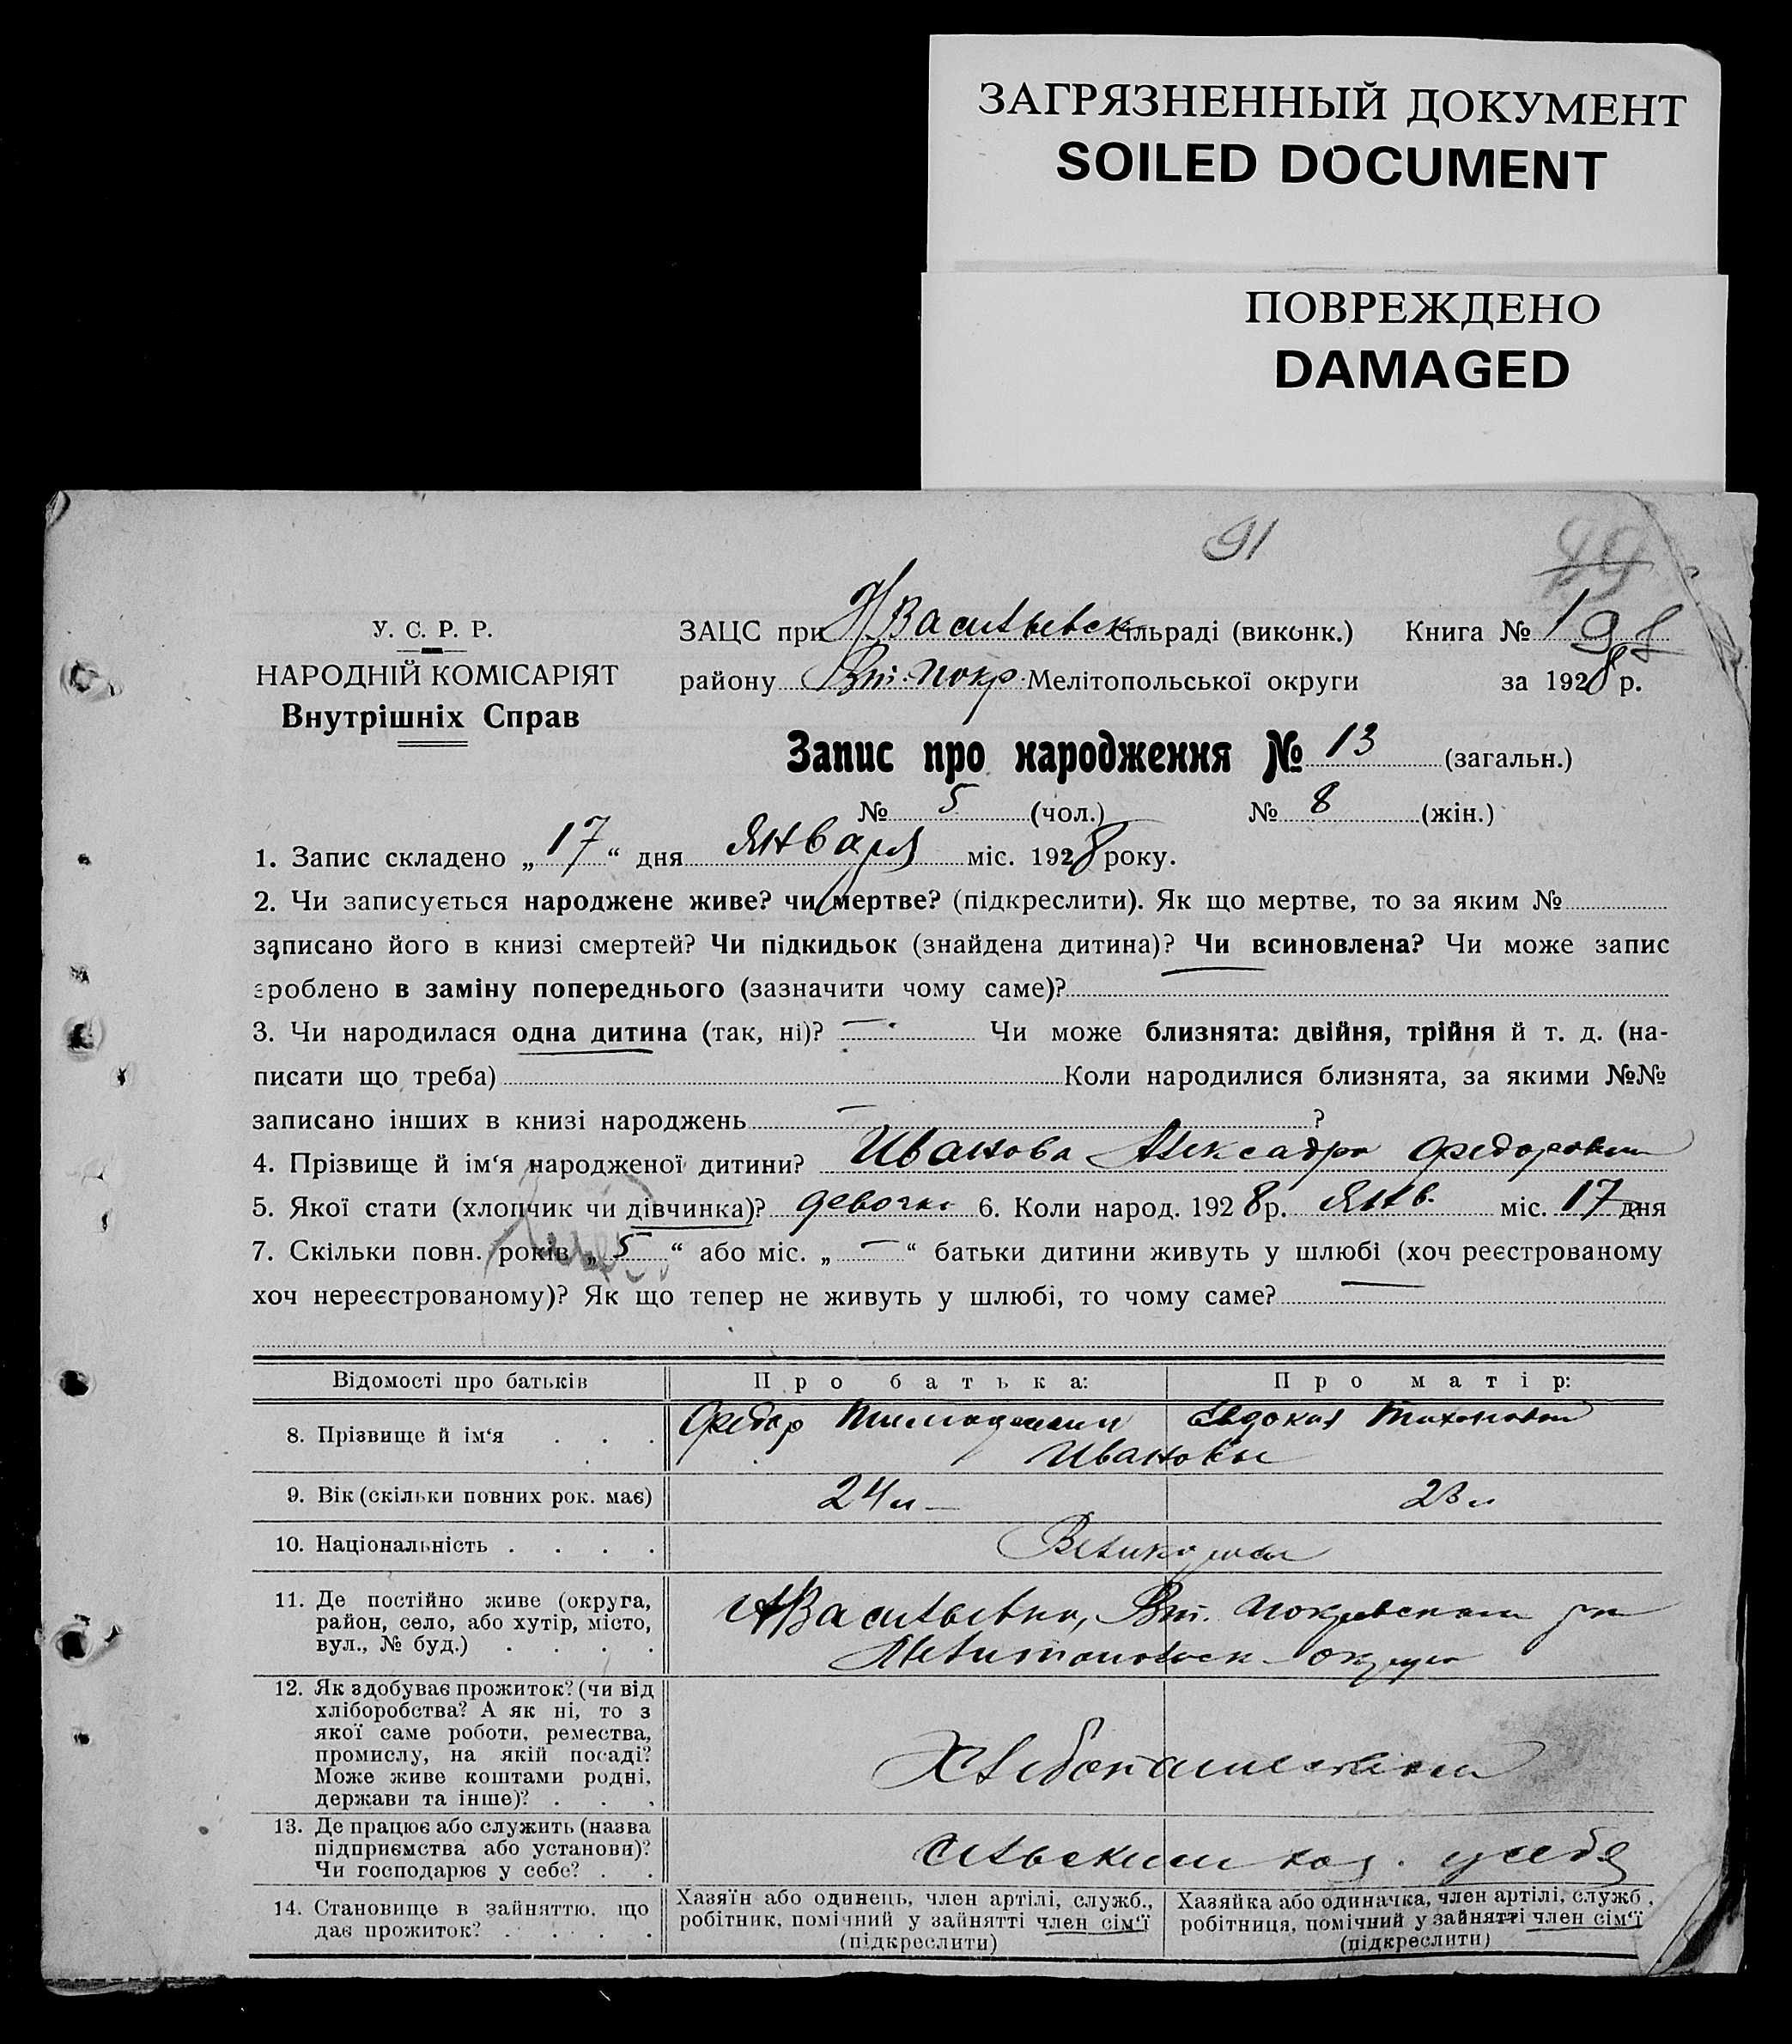 ЗАГРЯЗНЕННЫЙ ДОКУМЕНТ
SOILED DOCUMENT
ПОВРЕЖДЕНО
DAMAGED
91
У. С. Р. Р.
НАРОДНІЙ КОМІСАРІЯТ
Внутрішніх Справ
ЗАЦС при Н Васильевск сільраді (виконк.) Книга №
району Вт. Покр. Мелітопольської округи за 1928 р.
Запис про народження № 13 (загальн.)
№ 5 (чол.) № 8 (жін.)
1. Запис складено „17“ дня Января міс. 1928 року.
2. Чи записується народжене живе? чи мертве? (підкреслити). Як що мертве, то за яким №
записано його в книзі смертей? Чи підкидьок (знайдена дитина)? Чи всиновлена? Чи може запис
зроблено в заміну попереднього (зазначити чому саме)?
3. Чи народилася одна дитина (так, ні)? — Чи може близнята: двійня, трійня й т. д. (на-
писати що треба) Коли народилися близнята, за якими №№
записано інших в книзі народжень — ?
4. Прізвище й ім‘я народженої дитини? Иванова Александра Федоровна
5. Якої стати (хлопчик чи дівчинка)? девочка 6. Коли народ. 1928 р. Янв. міс. 17 дня
7. Скільки повн. років „5“ або міс. „—“ батьки дитини живуть у шлюбі (хоч реєстрованому
хоч нереєстрованому)? Як що тепер не живуть у шлюбі, то чому саме? —
Відомості про батьків Про батька: Про матір:
8. Прізвище й ім‘я . . . Федор Тимофеевич Евдокия Тихоновна
Ивановы
9. Вік (скільки повних рок. має) 24 л — 23 л
10. Національність . . . . Великоросы
11. Де постійно живе (округа, район, село, або хутір, місто, вул., № буд.) . . . . Н Васильевка, Вт. Покровского р-на
Мелитопольск. округа
12. Як здобуває прожиток? (чи від хліборобства? А як ні, то з якої саме роботи, ремества, промислу, на якій посаді? Може живе коштами родні, держави та інше)? . . . Хлебопашеством
13. Де працює або служить (назва підприємства або установи)? Чи господарює у себе? . . сельским хоз. у себя
14. Становище в зайняттю, що дає прожиток? . . . . Хазяїн або одинець, член артілі, служб., робітник, помічний у зайнятті член сім‘ї (підкреслити) Хазяйка або одиначка, член артілі, служб., робітниця, помічний у зайнятті член сім‘ї (підкреслити)